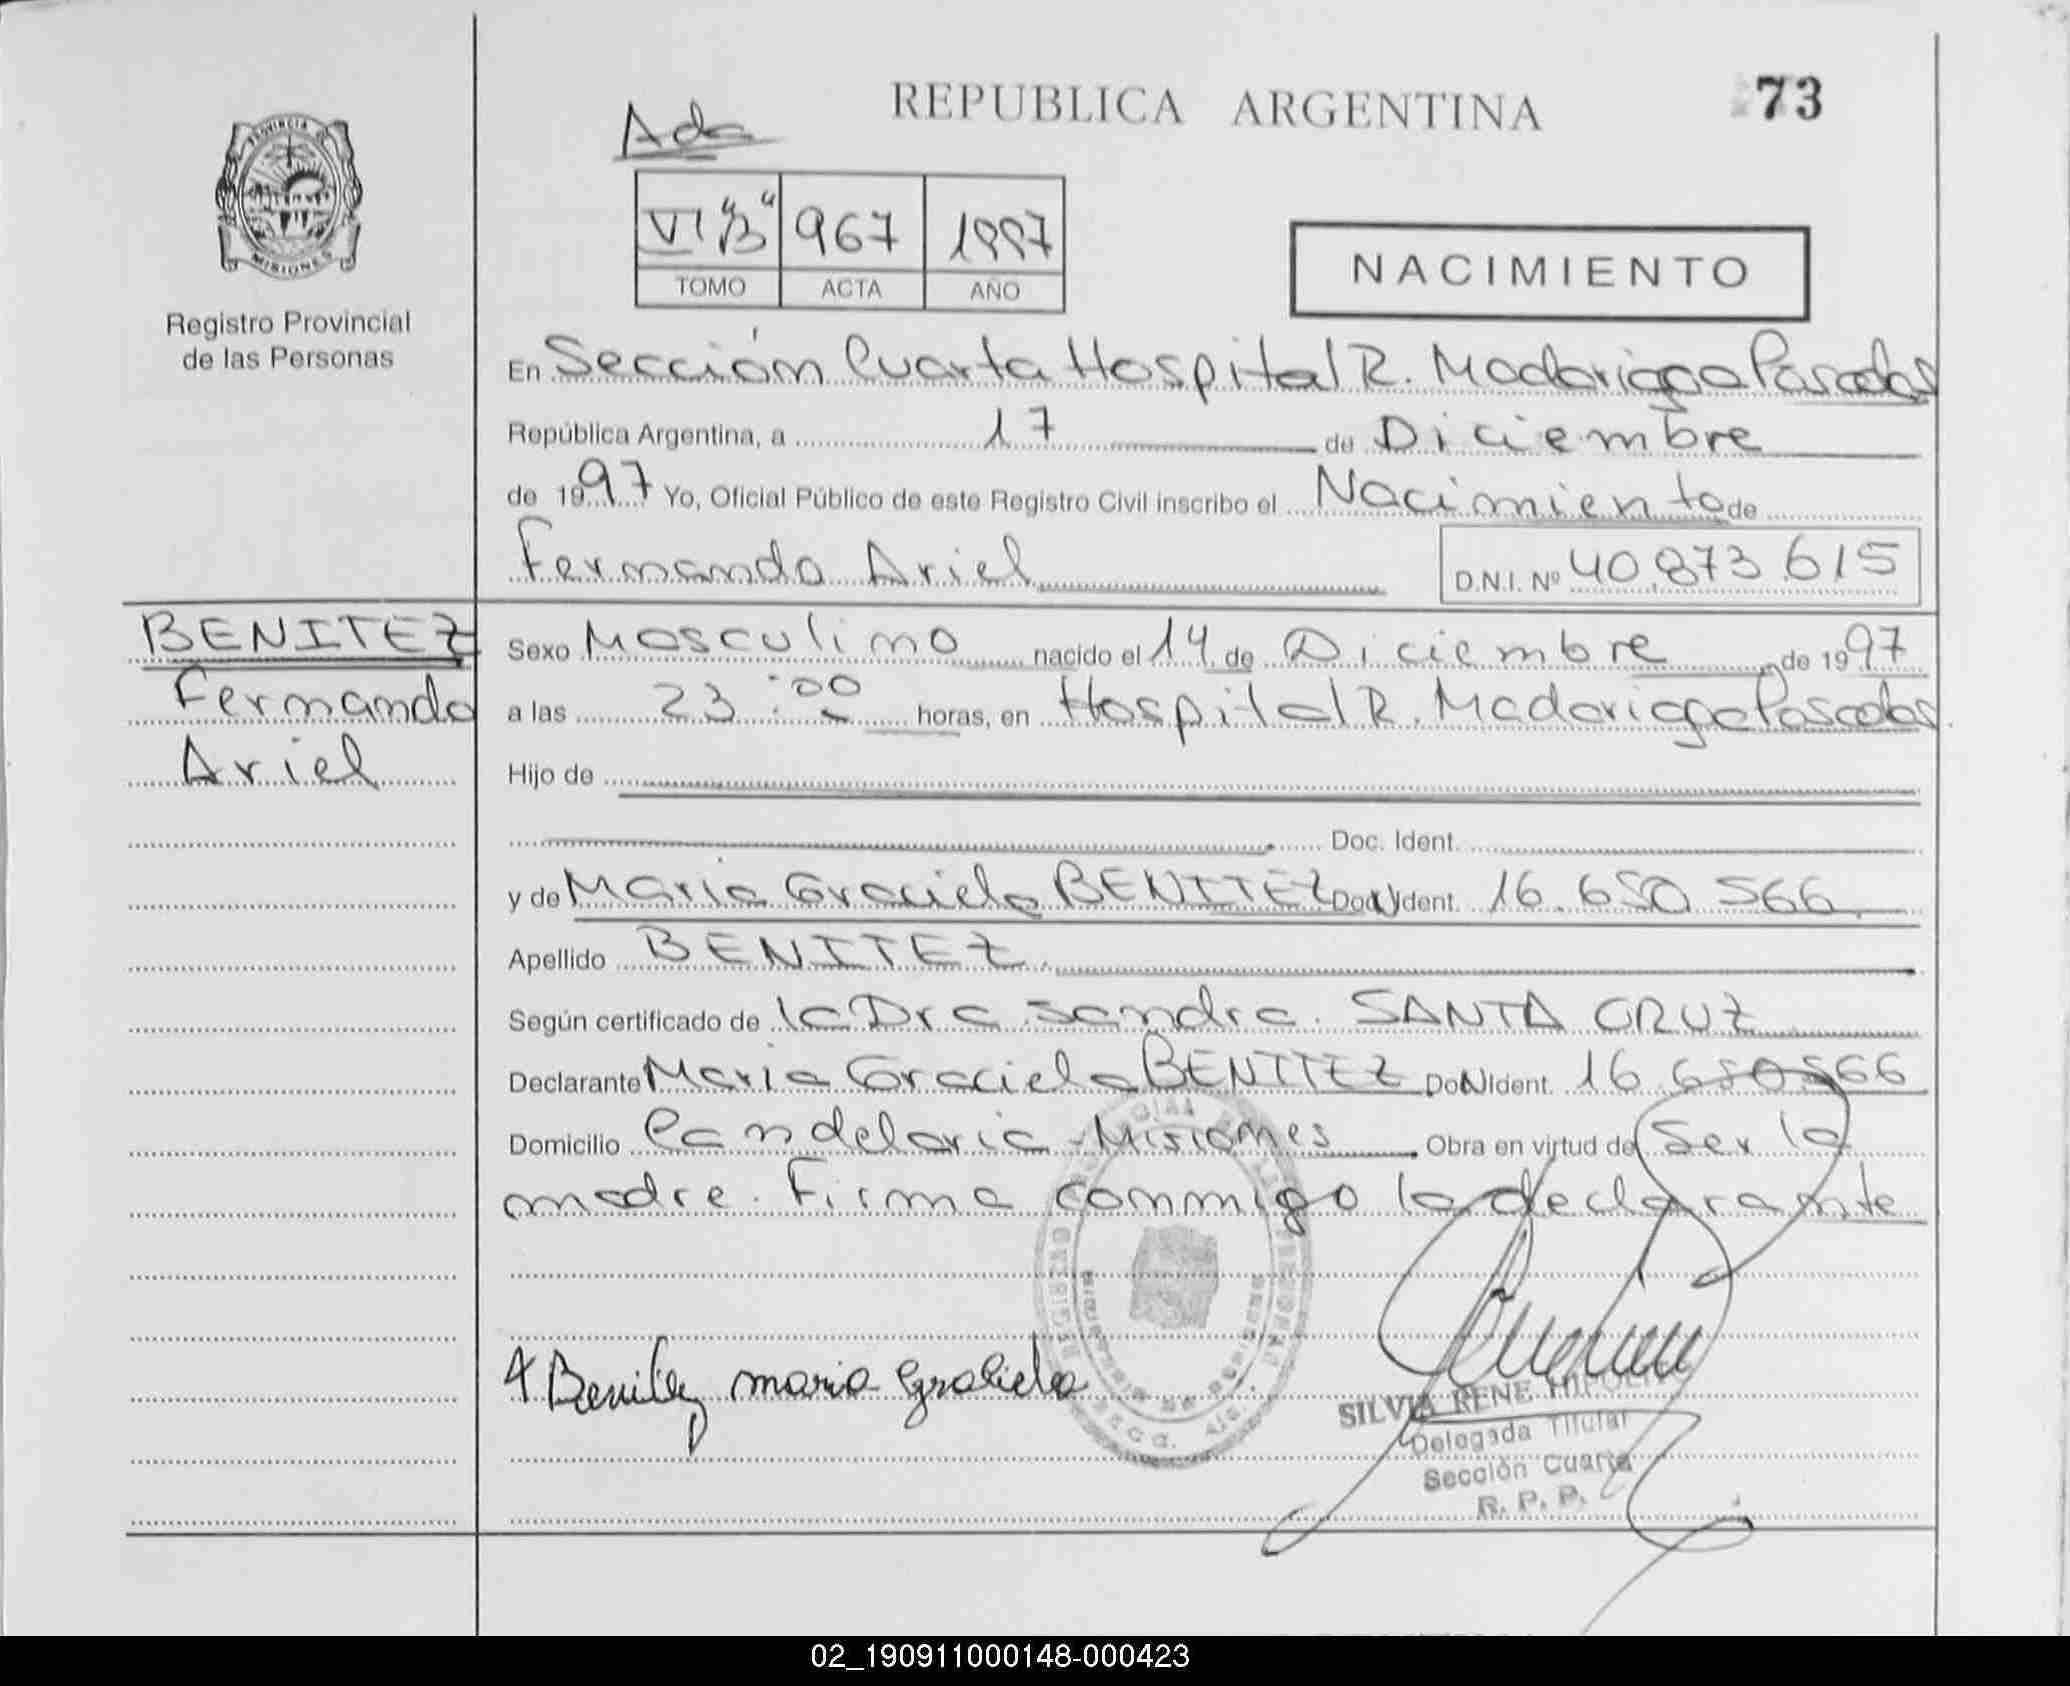 REPUBLICA ARGENTINA
73
Ada
PROVINCIA DE
MISIONES
Registro Provincial
de las Personas
VI "B" 967 1997
TOMO ACTA AÑO
NACIMIENTO
En Sección Cuarta Hospital R. Madariaga Posadas
República Argentina, a 17 de Diciembre
de 1997 Yo, Oficial Público de este Registro Civil inscribo el Nacimiento de
Fernando Ariel D.N.I. Nº 40.873.615
BENITEZ
Fernando
Ariel
Sexo Masculino nacido el 14 de Diciembre de 1997
a las 23:00 horas, en Hospital R. Madariaga Posadas
Hijo de
Doc. Ident.
y de Maria Graciela BENITEZ Doc. Ident. 16.650.566
Apellido BENITEZ
Según certificado de la Dra Sandra SANTA CRUZ
Declarante Maria Graciela BENITEZ Doc. Ident. 16.650566
Domicilio Candelaria - Misiones Obra en virtud de Ser la
madre. Firma conmigo la declarante
Benitez maria Graciela
SILVIA RENE
Delegada Titular
Sección Cuarta
R. P. P.
02_190911000148-000423